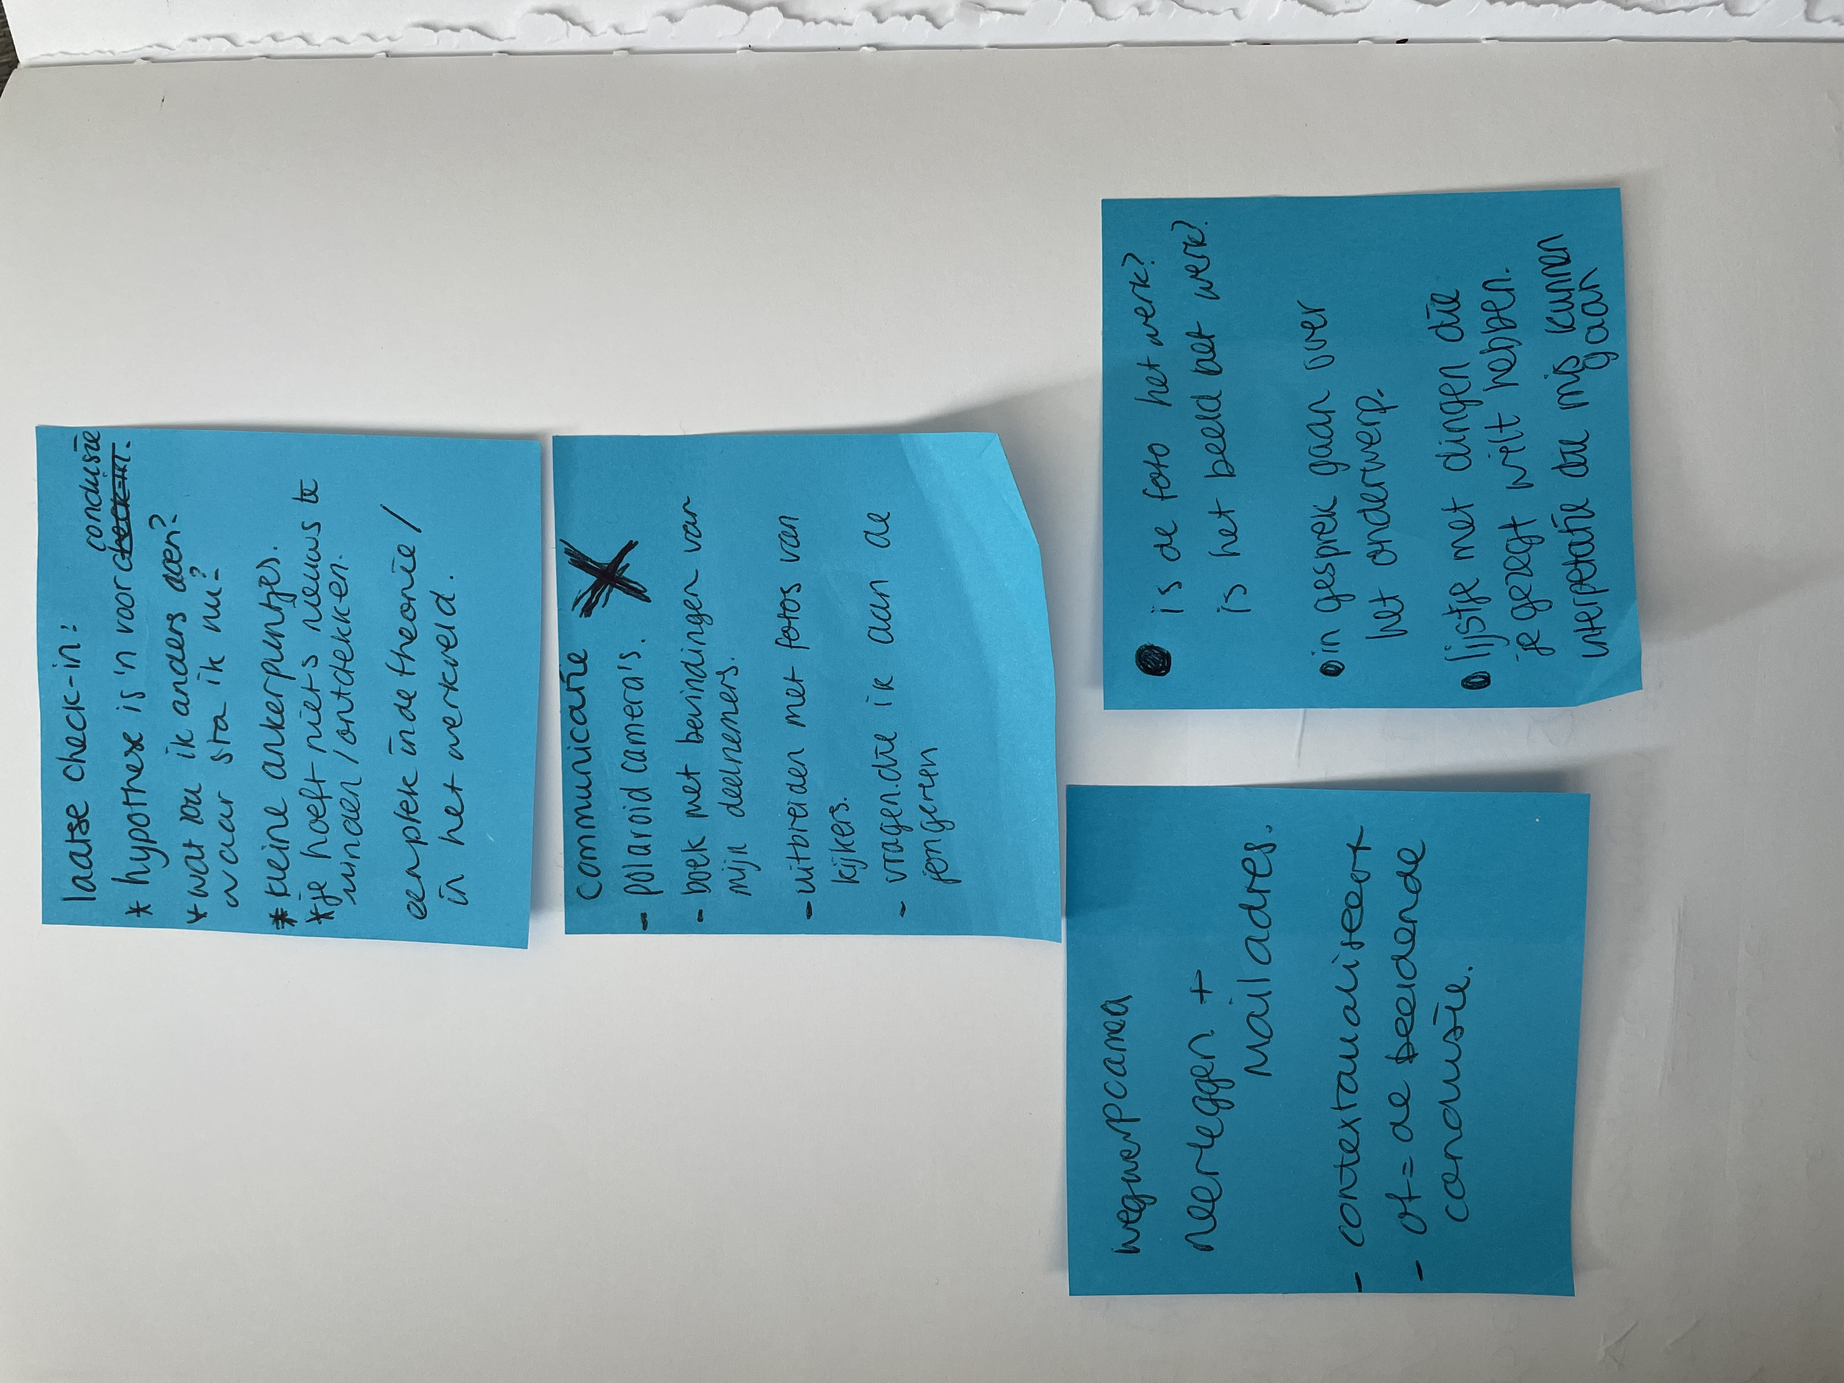 laatse check-in:
* hypothese is 'n voor conclusie
check-in.
* wat zou ik anders doen?
waar sta ik nu?
* kleine ankerpuntjes.
* je hoeft niets nieuws te
vinden / ontdekken.
een plek in de theorie /
in het werkveld.
communicatie
- polaroid camera's.
- boek met bevindingen van
mijn deelnemers.
- uitbreiden met fotos van
kijkers.
- vragen die ik aan de
jongeren
wegwerpcamera
neerleggen +
Mailadres.
- contextualiseert
- of = de beeldende
conclusie.
● is de foto het werk?
is het beeld het werk?
● in gesprek gaan over
het onderwerp.
● lijstje met dingen die
je gezegt wilt hebben.
interpetatie die mis kunnen
gaan